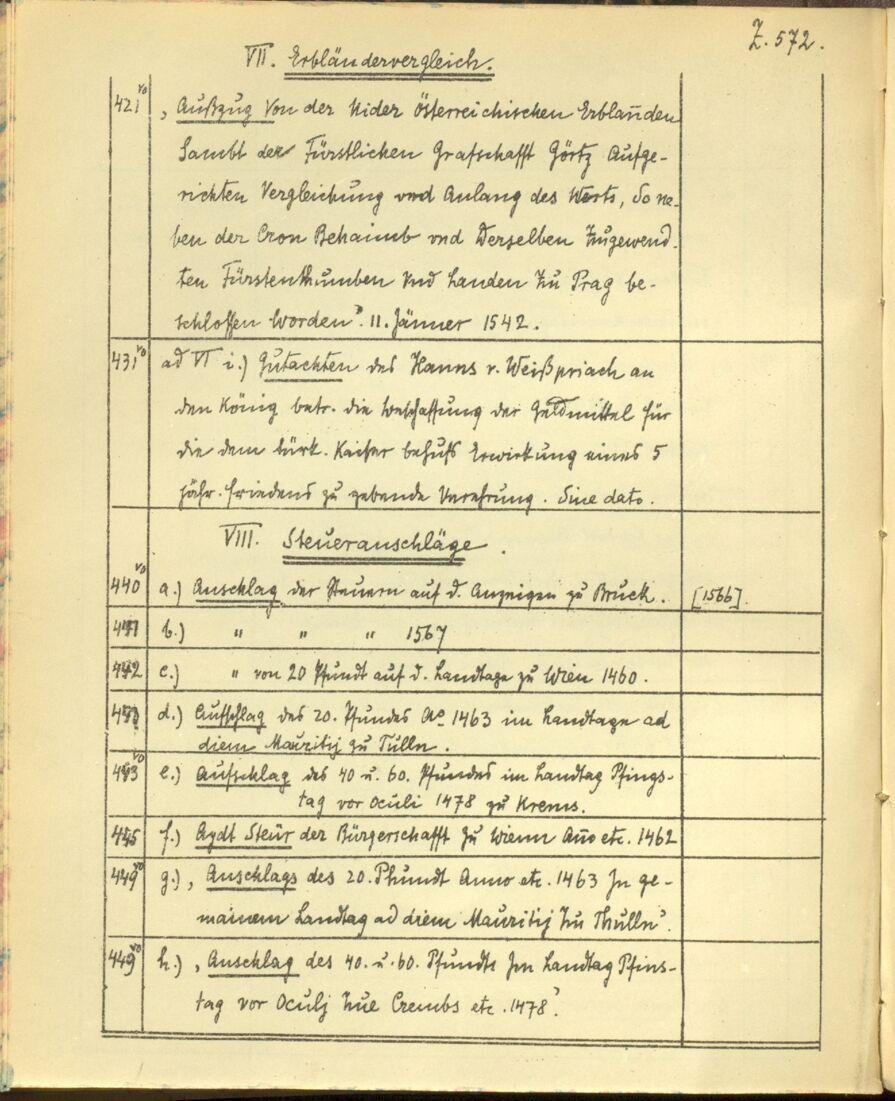 Z. 572.
VII. Erbländervergleich.
421 vo ‚Außzug von der Nider Österreichischen Erblanden
Sambt der Fürstlichen Grafschafft Görtz Aufge-
richten Vergleichung vnd Anlang des Werts, So ne-
ben der Cron Behaimb vnd Derselben Zugewend-
ten Fürstenthumben Vnd Landen Zu Prag be-
schlossen Worden‘. 11. Jänner 1542.
431 vo ad VI i.) Gutachten des Hanns v. Weißpriach an
den König betr. die Beschaffung der Geldmittel für
die dem türk. Kaiser behufs Erwirkung eines 5
jähr. Friedens zu gebende Verehrung. Sine dato.
VIII. Steueranschläge.
440 vo a.) Anschlag der Steuern auf d. Anzeigen zu Bruck. [1566].
441 b.) " " " 1567
442 c.) " von 20 Pfundt auf d. Landtage zu Wien 1460.
443 d.) Aufschlag des 20. Pfundes Ao 1463 im Landtage ad
diem Mauritij zu Tulln.
443 vo e.) Aufschlag des 40 u. 60. Pfundes im Landtag Pfings-
tag vor Oculi 1478 zu Krems.
445 f.) Aydt Steür der Bürgerschafft Zu Wienn Año etc. 1462
449 vo g.) ‚Anschlags des 20. Phundt Anno etc. 1463 Jn ge-
mainem Landtag ad diem Mauritij Zu Thulln‘.
449 vo h.) ‚Anschlag des 40. u. 60. Pfundts Jm Landtag Pfins-
tag vor Oculj Zue Crembs etc. 1478‘.